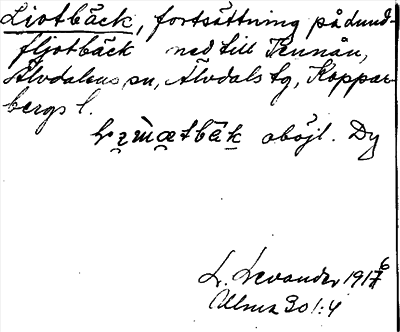 Liotbäck, fortsättning på Lund-
fljotbäck ned till Rennån,
Älvdalens sn, Älvdals tg, Koppar-
bergs l.
oböjl. Dy
L. Levander 1916
Ulma 301:4